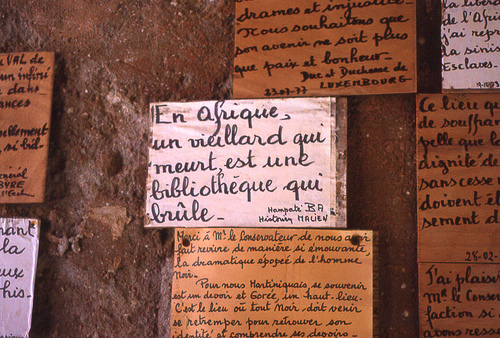 drames et injustice
Nous souhaitons que
son avenir ne soit plus
que paix et bonheur.
Duc et Duchesse de
LUXEMBOURG
23-07-77
la libéra
de l'Afri
j'ai repr
la sinis
Esclaves.
VAL de
un infini
dans
ances
si bil
énéral
BVRE
En Afrique,
un vieillard qui
meurt, est une
bibliothèque qui
brûle_
Hampaté BA
Historien MALIEN
Ce lieu q
de souffran
pelle que le
dignité d
sans cesse
doivent êt
sement d
28-02-
ant
la
eux
his-
Merci à Mr le Conservateur de nous avoir
fait revivre de manière si émouvante,
la dramatique épopée de l'homme
Noir.
Pour nous Martiniquais, se souvenir
est un devoir et Gorée, un haut-lieu.
C'est le lieu où tout Noir, doit venir
se retremper pour retrouver, son
identité et comprendre ses devoirs_
J'ai plaisi
Mr le Conser
faction si
avons ress